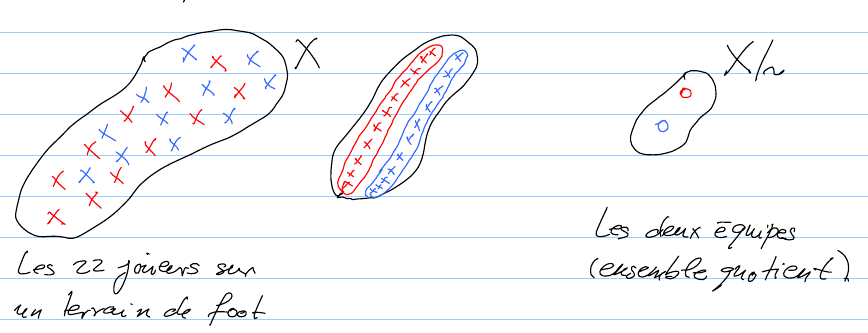 X
X/~
Les 22 joueurs sur
un terrain de foot
Les deux équipes
(ensemble quotient)